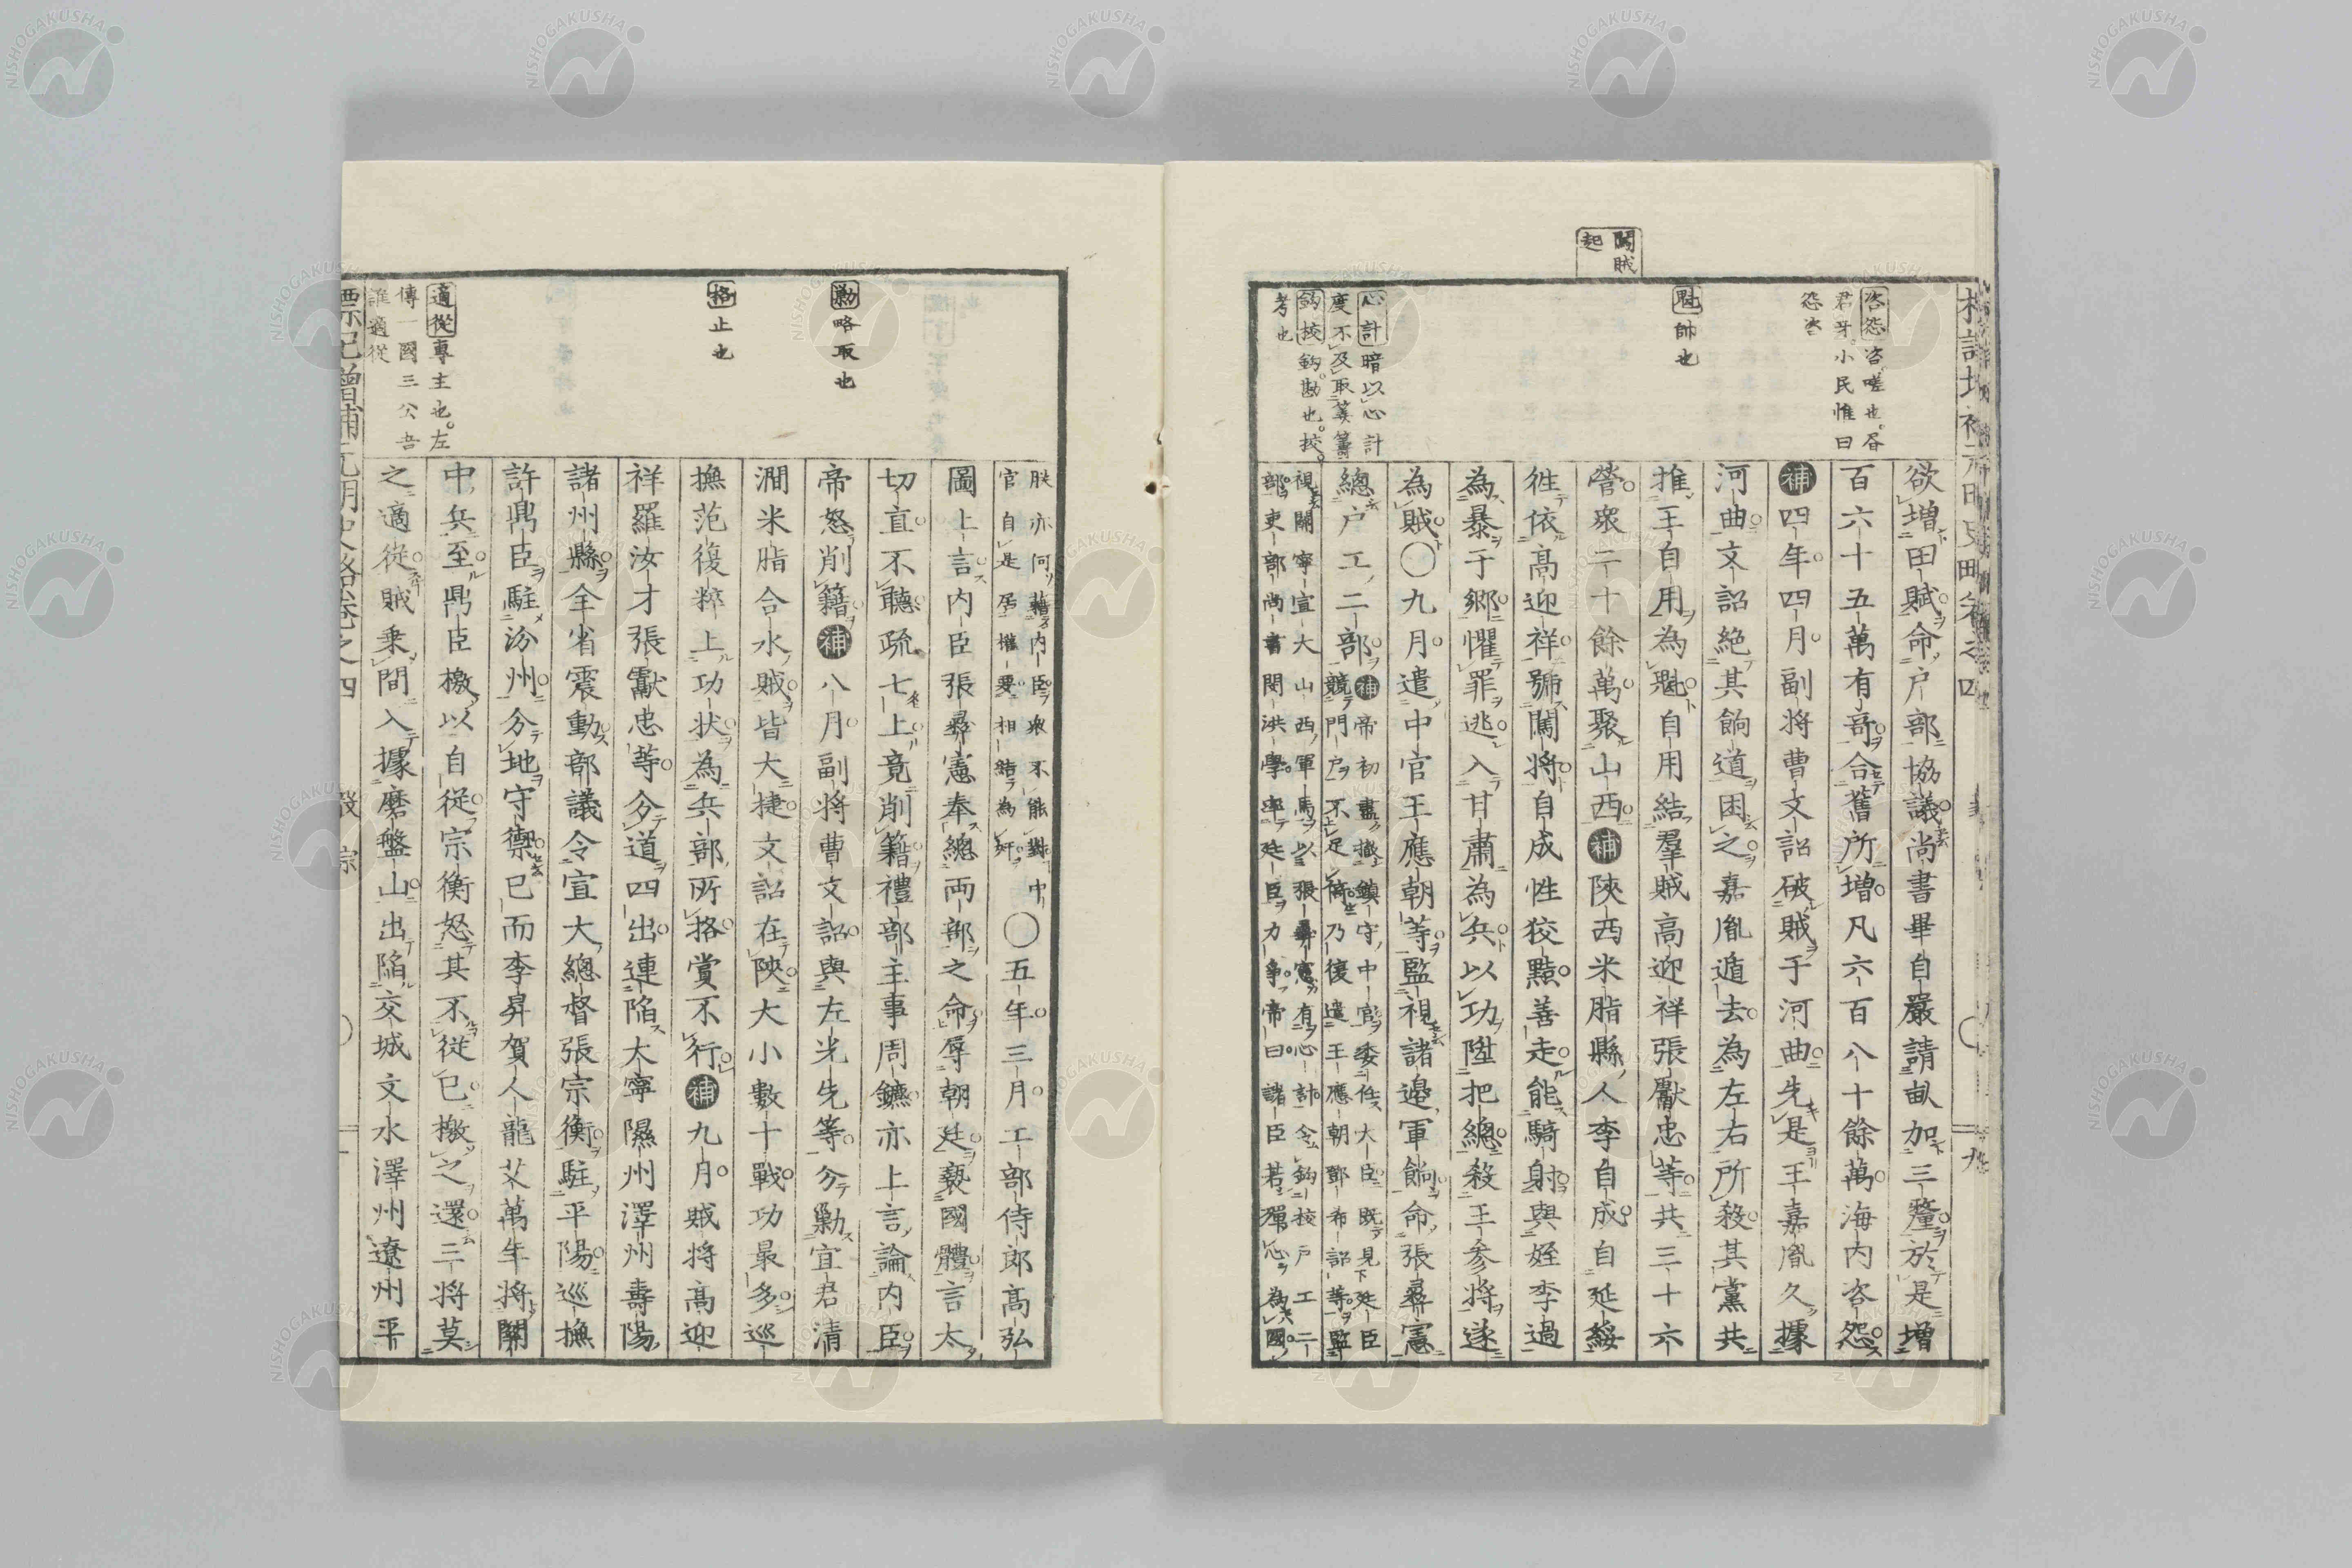 闖賊
起
咨怨咨嗟也。書
君牙。小民惟曰
怨咨
魁帥也
心計暗以心計
度不及取算籌
鈎挍鈎勘也。挍。
考也
欲增田賦命户部協議尚書畢自嚴請畝加三釐於是增
百六十五萬有奇合舊所增凡六百八十餘萬海内咨怨
補四年四月副将曹文詔破賊于河曲先是王嘉胤久據
河曲文詔絶其餉道困之嘉胤遁去為左右所殺其黨共
推王自用為魁自用結羣賊高迎祥張獻忠等共三十六
營衆二十餘萬聚山西補陝西米脂縣人李自成自延綏
徃依高迎祥號闖将自成性狡黠善走能騎射與姪李過
為暴于鄉懼罪逃入甘肅為兵以功陞把總殺王参将遂
為賊〇九月遣中官王應朝等監視諸邉軍餉命張彝憲
總户工二部補帝初盡撤鎮守中官委任大臣既見廷臣
競門户不足倚乃復遣王應朝鄧希詔等監
視關寧宣大山西軍馬以張彝憲有心計令鈎挍户工二
部吏部尚書閔洪學率廷臣力爭帝曰諸臣若殫心為國
朕亦何藉内臣衆不能對中
官自是居權要相結為奸〇五年三月工部侍郎高弘
圖上言内臣張彝憲奉總両部之命辱朝廷褻國體言太
切直不聽疏七上竟削籍禮部主事周鑣亦上言論内臣
帝怒削籍補八月副将曹文詔與左光先等分勦宜君清
澗米脂合水賊皆大捷文詔在陝大小數十戰功最多巡
撫范復粹上功状為兵部所挌賞不行補九月賊将高迎
祥羅汝才張獻忠等分道四出連陷大寧隰州澤州壽陽
諸州縣全省震動部議令宣大總督張宗衡駐平陽巡撫
許鼎臣駐汾州分地守禦已而李昇賀人龍艾萬年将關
中兵至鼎臣檄以自従宗衡怒其不従已檄之還三将莫
之適従賊乗間入據磨盤山出陷交城文水澤州遼州平
勦略取也
挌止也
適従專主也。左
傳一國三公吾
誰適従